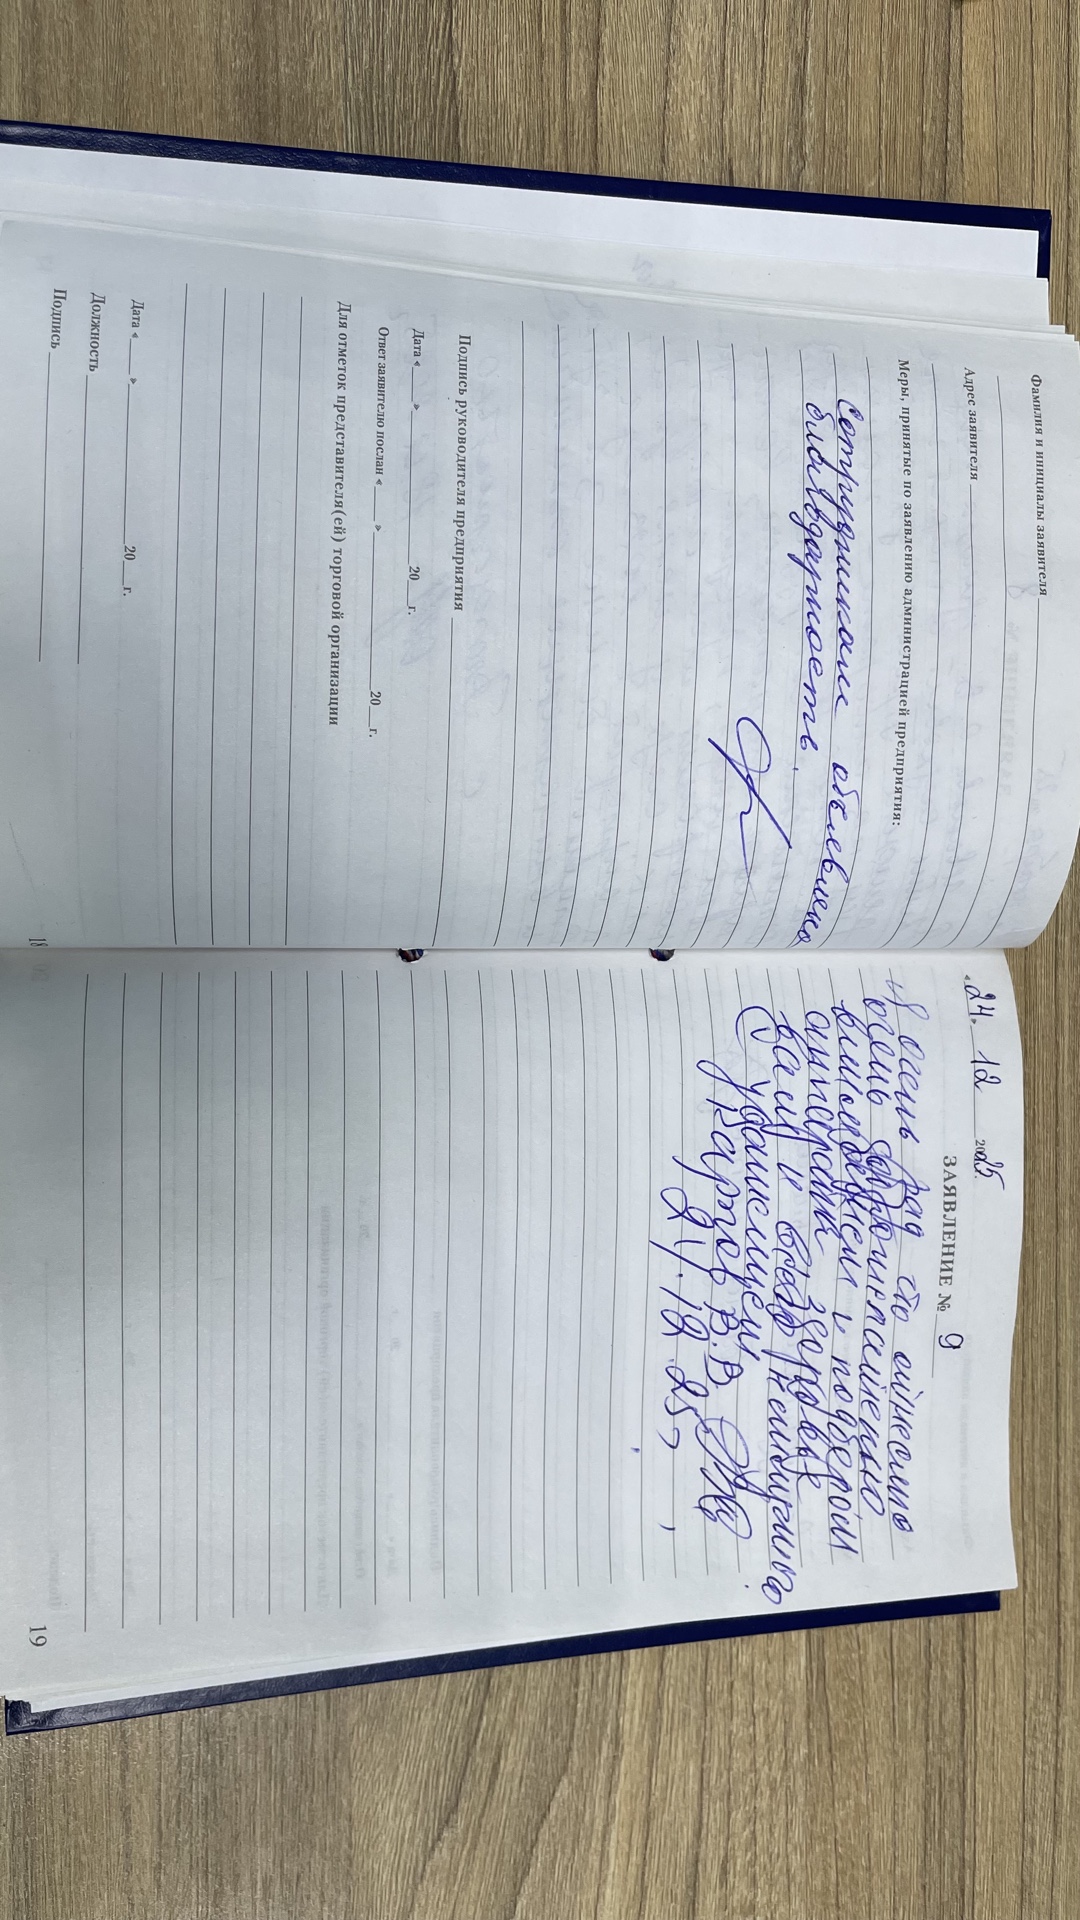 Фамилия и инициалы заявителя
Адрес заявителя
Меры, принятые по заявлению администрацией предприятия:
Сотрудникам объявлена
благодарность.
Подпись руководителя предприятия
Дата « » 20 г.
Ответ заявителю послан « » 20 г.
Для отметок представителя(ей) торговой организации
Дата « » 20 г.
Должность
Подпись
18
«24» 12 2025.
ЗАЯВЛЕНИЕ № 9
Я очень рад что
очень
и подбером
здоровье
вам и всего наилучшего
С уважением
В.В.
24.12.25
19